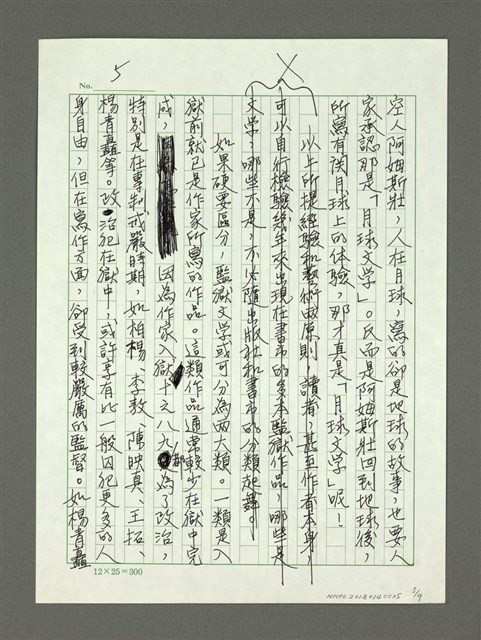 5
No.
空人阿姆斯壯，人在月球，寫的卻是地球的故事，也要人
家承認那是「月球文學」。反而是阿姆斯壯回到地球後，
所寫有関月球上的体驗，那才真是「月球文學」呢！
以上所提經驗和藝術由原則，讀者，甚至作者本身，
可以自行檢驗幾年來出現在書市的多本監獄作品，哪些是
文學，哪些不是，不必隨出版社和書市的分類起舞。
如果硬要區分，監獄文学或可分為兩大類。一類是入
獄前就已是作家所寫的作品。這類作品通常較少在獄中完
成，因為作家入獄十之八九都為了政治，
特別是在專制戒嚴時期，如柏楊、李敖、陳映真、王拓、
楊青矗等。政治犯在獄中，或許享有比一般囚犯更多的人
身自由，但在寫作方面，卻受到較嚴厲的監督。如楊青矗
12×25=300
NMTL20180140025 5/9